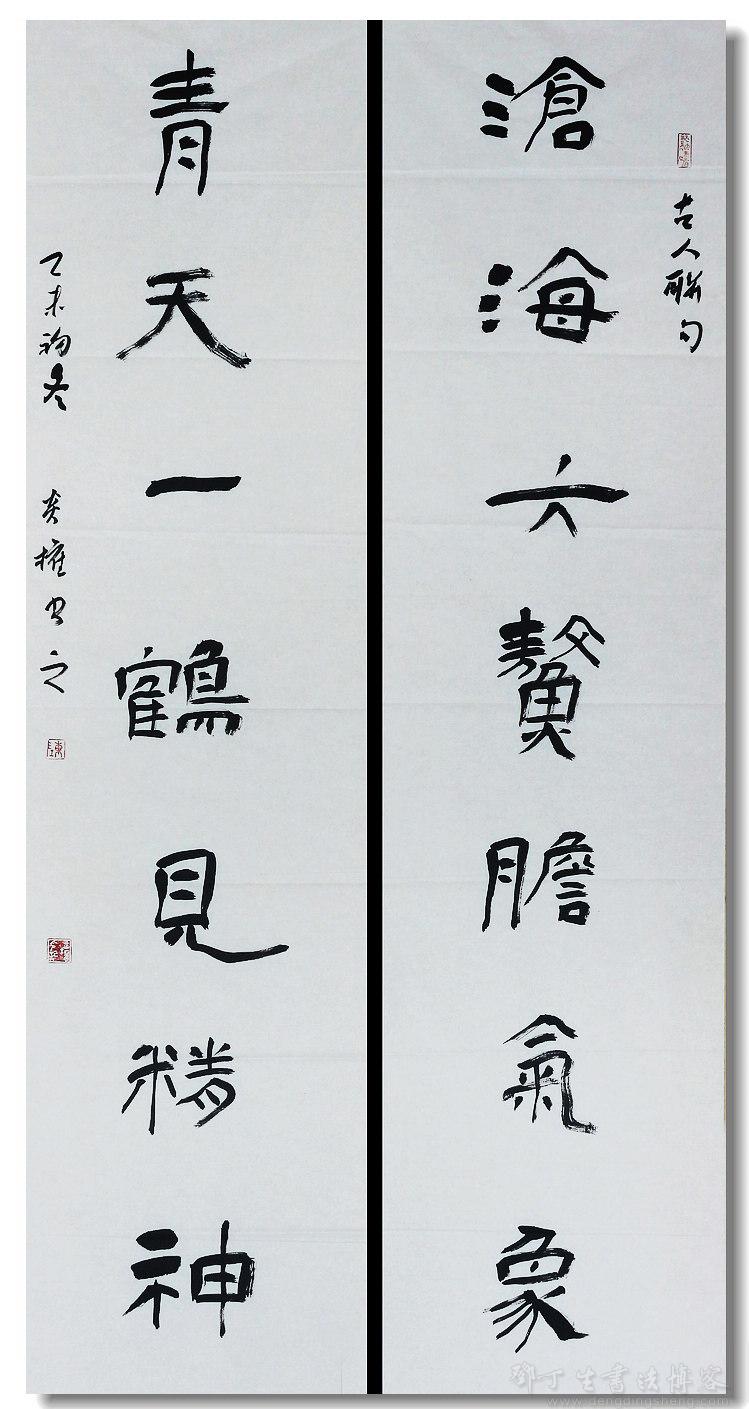 古人聯句
滄海六鰲膽氣象
青天一鶴見精神
乙未初冬
權书之
鄧丁生書法博客
www.dengdingsheng.com